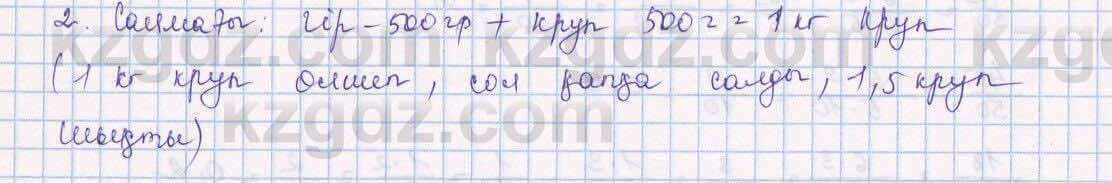 2. Салмағы: Гір – 500 гр + круп 500 г = 1 кг круп
(1 кг круп өлшеп, сол қапқа салды, 1,5 круп
шықты)
kzgdz.com kzgdz.com
kzgdz.com